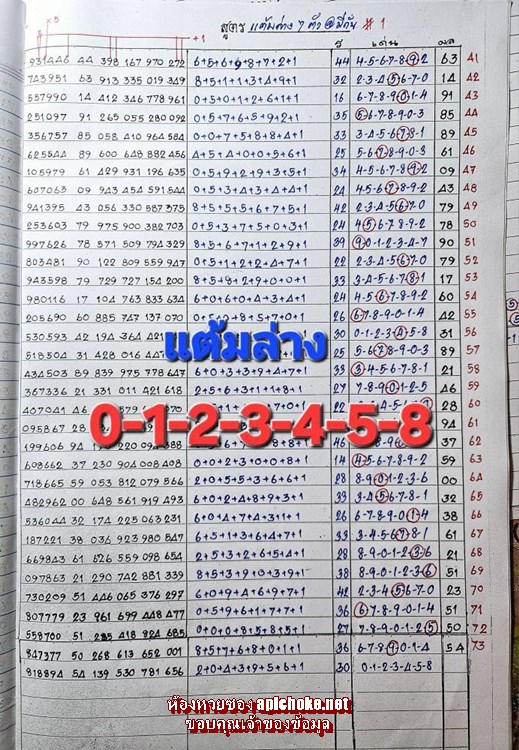 x5
+1
สูตร แต้มล่าง 7 ตัว @ มีกัน #1
ร เด่น ผล
931446 44 398 167 970 272 6+5+6+9+8+7+2+1 44 4-5-6-7-8-9-2 63 41
743951 63 913 335 019 349 8+5+1+1+3+4+1 32 2-3-4-5-6-7-0 14 42
557990 14 412 346 778 961 0+5+0+1+2+6+1+1 16 6-7-8-9-0-1-4 91 43
251097 91 265 055 280 092 0+5+7+6+5+9+2+1 35 5-6-7-8-9-0-3 85 44
356757 85 058 410 964 584 0+0+7+5+8+8+4+1 33 3-4-5-6-7-8-1 89 45
625544 89 600 648 882 456 4+5+4+0+0+5+6+1 25 5-6-7-8-9-0-3 61 46
105979 61 429 931 196 635 0+5+9+2+9+3+5+1 34 4-5-6-7-8-9-2 07 47
607063 09 943 454 591 544 0+5+3+4+3+4+4+1 24 4-5-6-7-8-9-2 43 48
941395 43 056 330 587 375 8+5+5+5+6+7+5+1 42 2-3-4-5-6-7-0 79 49
253603 79 975 900 382 703 0+5+3+7+5+0+3+1 24 4-5-6-7-8-9-2 78 50
997626 78 571 509 794 329 8+5+6+7+1+2+9+1 39 9-0-1-2-3-4-7 90 51
803481 90 122 809 559 947 0+5+1+2+2+4+7+1 22 2-3-4-5-6-7-0 79 52
943598 79 729 727 154 200 8+5+8+2+9+0+0+1 33 3-4-5-6-7-8-1 17 53
980116 17 104 763 833 634 6+0+6+0+4+3+4+1 24 4-5-6-7-8-9-2 60 54
205690 60 885 747 137 070 26 6-7-8-9-0-1-4 42 55
530593 42 194 30 0-1-2-3-4-5-8 31 56
518504 31 428 016 25 5-6-7-8-9-0-3 89 57
434503 89 839 975 778 647 6+0+3+3+9+4+7+1 33 3-4-5-6-7-8-1 21 58
367336 21 331 011 421 618 2+5+6+3+1+1+8+1 27 7-8-9-0-1-2-5 46 59
แต้มล่าง
407041 46 22 28 60
0-1-2-3-4-5-8
095867 28 94 61
199606 94 46 37 62
608662 37 230 904 008 408 0+0+2+3+0+0+8+1 14 4-5-6-7-8-9-2 59 63
718665 59 053 812 079 566 2+0+5+5+3+6+6+1 28 8-9-0-1-2-3-6 00 64
482962 00 648 561 919 493 6+0+2+4+8+9+3+1 33 3-4-5-6-7-8-1 32 65
536044 32 174 225 063 231 6+0+4+7+4+3+1+1 26 6-7-8-9-0-1-4 38 66
187221 38 036 923 980 547 6+5+1+3+6+4+7+1 33 3-4-5-6-7-8-1 61 67
669843 61 626 559 098 654 2+5+3+2+6+5+4+1 28 8-9-0-1-2-3-6 21 68
097863 21 290 742 881 339 8+5+3+9+0+3+9+1 38 8-9-0-1-2-3-6 51 69
730209 51 446 065 376 297 6+0+9+4+6+9+7+1 42 2-3-4-5-6-7-0 23 70
807779 23 961 699 448 477 0+5+9+6+1+7+7+1 36 6-7-8-9-0-1-4 51 71
558700 51 285 418 824 685 0+0+0+8+5+8+5+1 27 7-8-9-0-1-2-5 50 72
847377 50 268 613 652 001 8+5+7+6+8+0+1+1 36 6-7-8-9-0-1-4 54 73
818894 54 139 530 781 656 2+0+4+3+9+5+6+1 30 0-1-2-3-4-5-8
ห้องหวยซอง apichoke.net
ขอบคุณเจ้าของข้อมูล